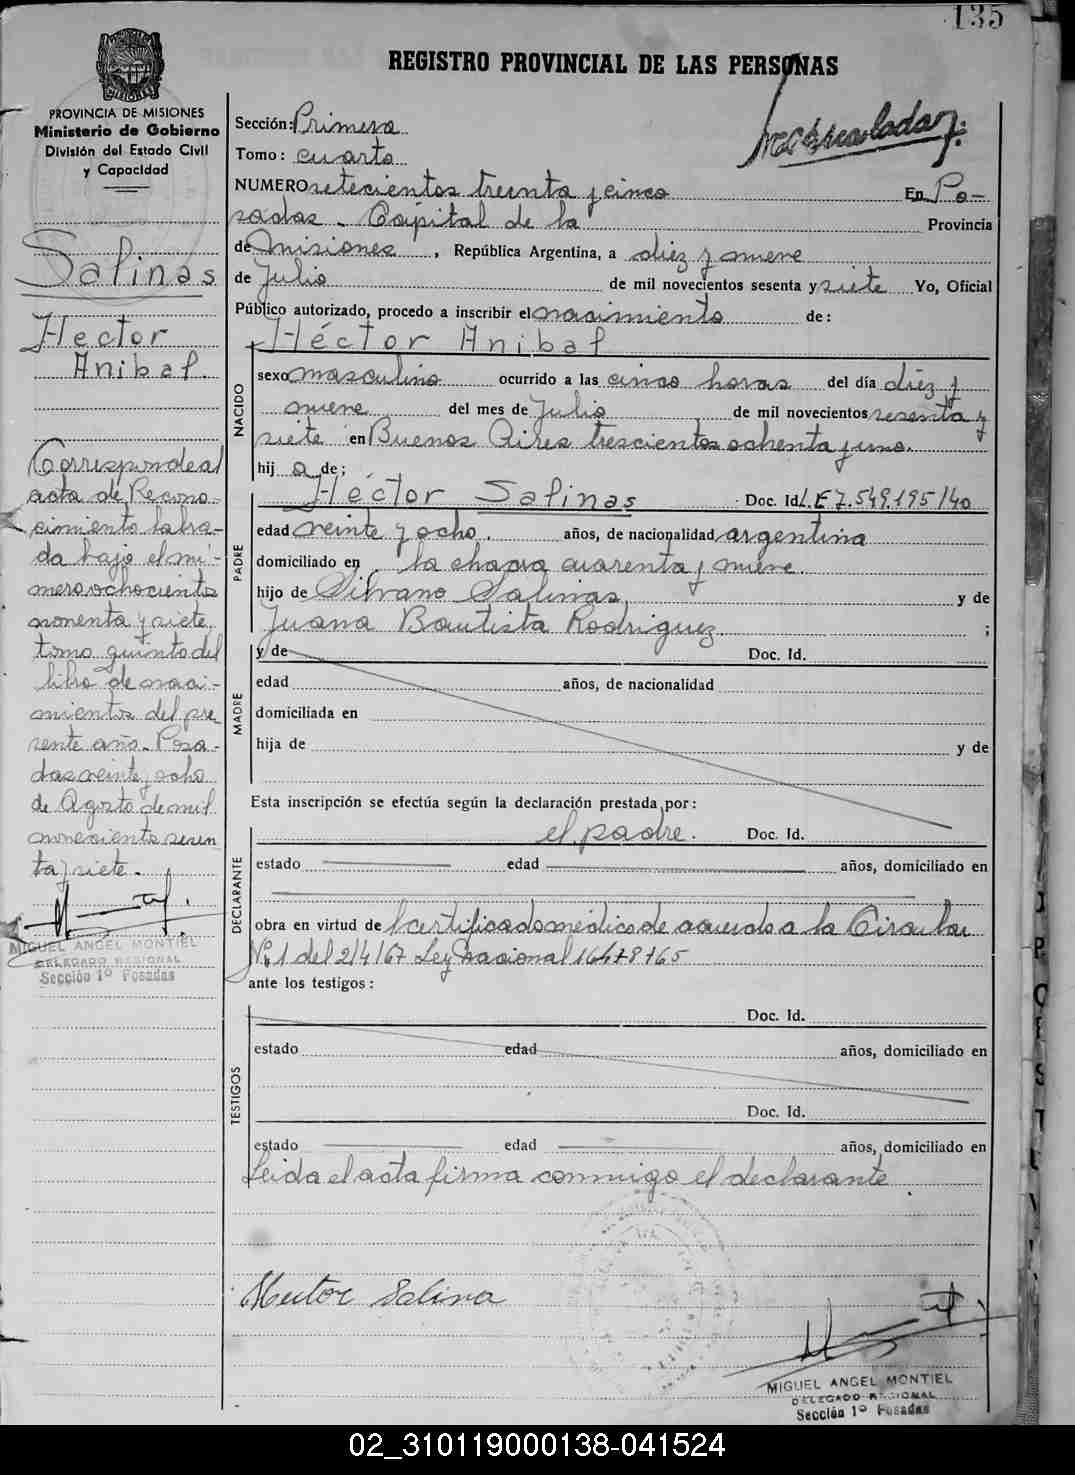 135
REGISTRO PROVINCIAL DE LAS PERSONAS
PROVINCIA DE MISIONES
Ministerio de Gobierno
División del Estado Civil
y Capacidad
Salinas
Hector
Anibal.
Corresponde al
acta de Recono-
cimiento labra-
da bajo el nú-
mero ochocientos
noventa y siete
tomo quinto del
libro de naci-
mientos del pre
sente año. Posa-
das veinte y ocho
de Agosto de mil
novecientos sesen
ta y siete.
MIGUEL ANGEL MONTIEL
DELEGADO REGIONAL
Sección 1º Posadas
Sección: Primera
Tomo: cuarto
NUMERO setecientos treinta y cinco En Po-
sadas - Capital de la Provincia
de Misiones, República Argentina, a diez y nueve
de Julio de mil novecientos sesenta y siete Yo, Oficial
Público autorizado, procedo a inscribir el nacimiento de:
NACIDO
Héctor Anibal
sexo masculino ocurrido a las cinco horas del día diez y
nueve del mes de Julio de mil novecientos sesenta y
siete en Buenos Aires trescientos ochenta y uno.
hij o de;
PADRE
Héctor Salinas Doc. Id. L.E 7.549.195/40
edad veinte y ocho. años, de nacionalidad argentina
domiciliado en la chacra cuarenta y nueve
hijo de Silvano Salinas y de
Juana Bautista Rodriguez ;
MADRE
y de Doc. Id.
edad años, de nacionalidad
domiciliada en
hija de y de
Esta inscripción se efectúa según la declaración prestada por:
DECLARANTE
el padre. Doc. Id.
estado edad años, domiciliado en
obra en virtud de certificado médico de acuerdo a la Circular
Nº 1 del 2/4/67 Ley Nacional
ante los testigos:
TESTIGOS
Doc. Id.
estado edad años, domiciliado en
Doc. Id.
estado edad años, domiciliado en
Leida el acta firma conmigo el declarante
Hector Salina
MIGUEL ANGEL MONTIEL
DELEGADO REGIONAL
Sección 1º Posadas
02_310119000138-041524